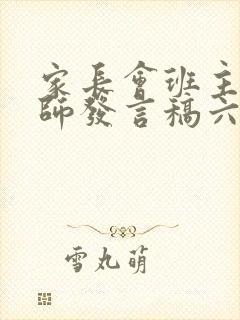 家長會班主
師發言稿六
雪丸萌